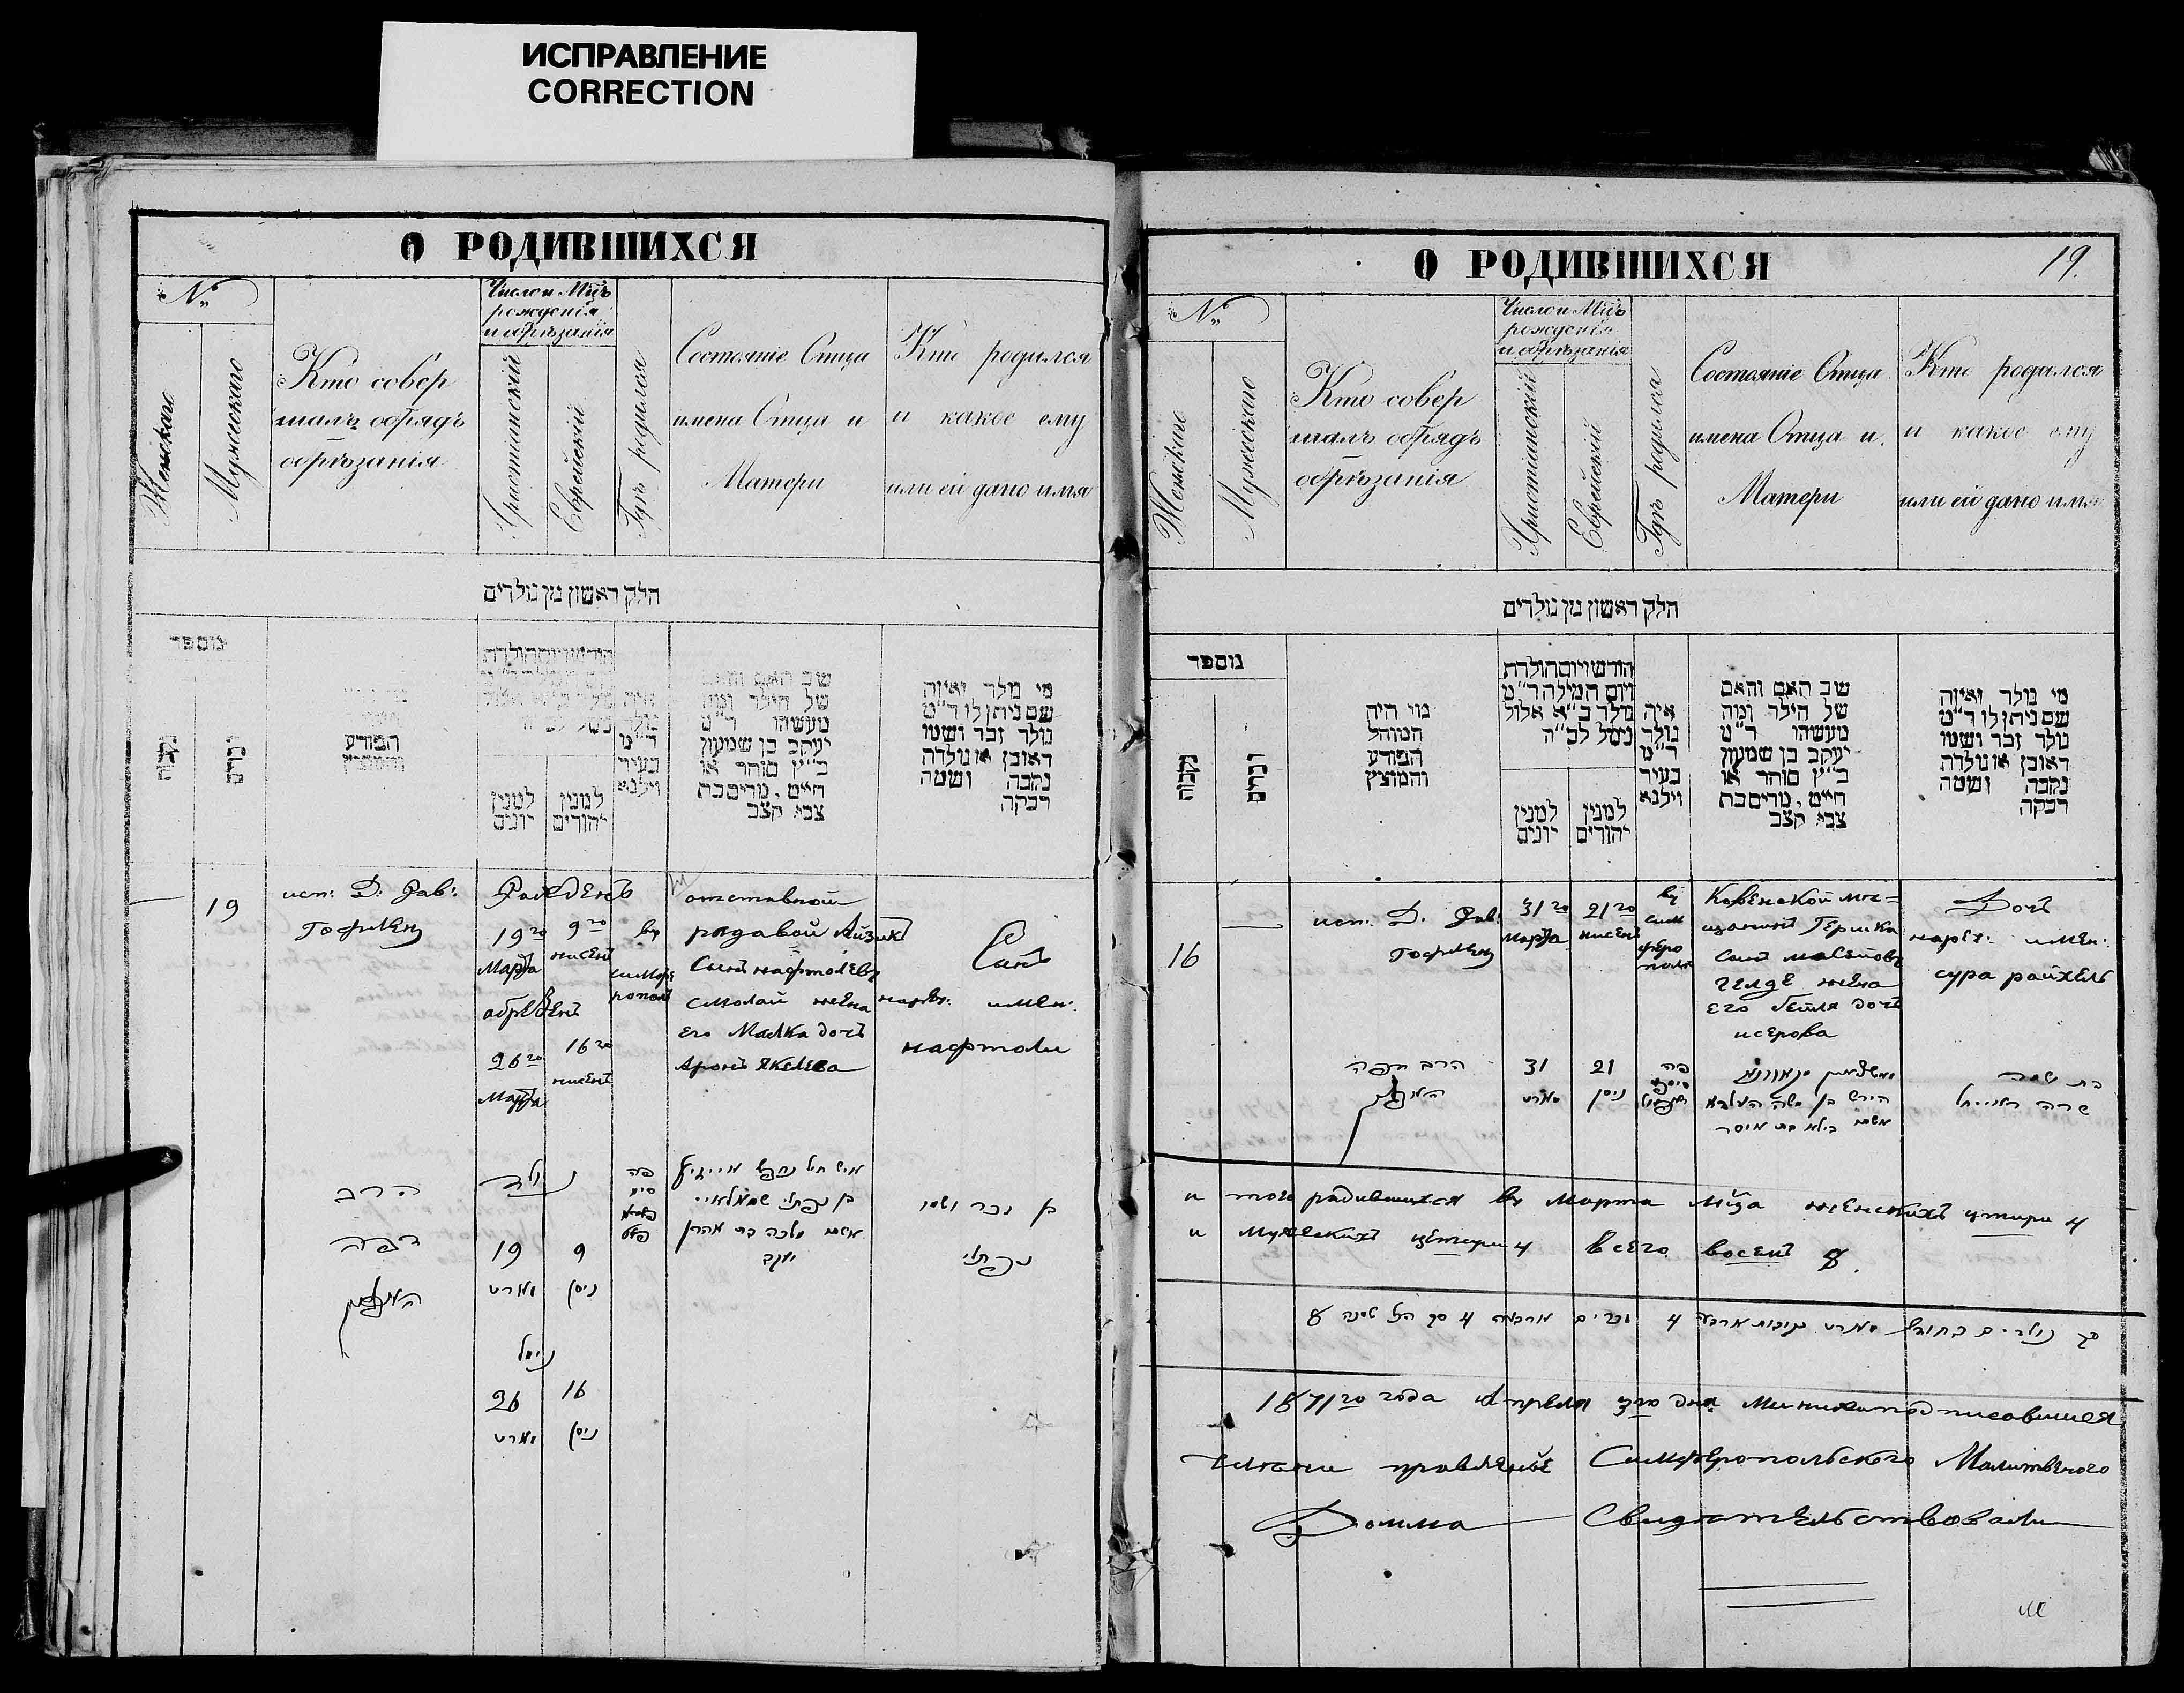 ИСПРАВЛЕНИЕ
CORRECTION
О РОДИВШИХСЯ
№
Женскаго
Мужескаго
Кто совер
шалъ обрядъ
обрѣзанія
Число и Мѣць
рожденія
и обрѣзанія
Христіанскій
Еврейскій
Гдѣ родился
Состояніе Отца
имена Отца и
Матери
Кто родился
и какое ему
или ей дано имя
חלק ראשון מן נולדים
מספר
הפורע
והמוצץ
למנין
יונים
למנין
יהודים
ר״מ
בעיר
ווילנא
שם האם והאם
של הילד ומה
מעשהו ר״מ
יעקב בן שמעון
כ״ץ סוחר או
חייט, מרים בת
צבי קצב
מי נולד ואיזה
שם ניתן לו ר״מ
נולד זכר ושמו
ראובן או נולדה
נקבה ושמה
רבקה
19
исп: Д: Рав:
Гофмен
Рожденъ
19го
Марта
9го
нисенъ
обрезенъ
26го
Марта
16го
нисенъ
въ
симфе
рополъ
отставной
рядавой Айзикъ
Сынъ нафтолевъ
смолай жена
его Малка дочъ
Аронъ Якелева
Сынъ
нарѣч: имен:
нафтоли
הרב
דפה
נולד
19
מארט
9
ניסן
נימול
26
מארט
16
ניסן
פה
סימ
בן זכר ושמו
נפתלי
О РОДИВШИХСЯ
19.
№
Женскаго
Мужескаго
Кто совер
шалъ обрядъ
обрѣзанія
Число и Мѣць
рожденія
и обрѣзанія
Христіанскій
Еврейскій
Гдѣ родился
Состояніе Отца
имена Отца и
Матери
Кто родился
и какое ему
или ей дано имя
חלק ראשון מן נולדים
מספר
נקבות
זכרים
מי היה
המוהל
הפורע
והמוצץ
חודש ויום הולדת
ויום המילה ר״מ
נולד כ״א אלול
נימל לס״ה
למנין
יונים
למנין
יהודים
איה
נולד
ר״מ
בעיר
ווילנא
שם האם והאם
של הילד ומה
מעשהו ר״מ
יעקב בן שמעון
כ״ץ סוחר או
חייט, מרים בת
צבי קצב
מי נולד ואיזה
שם ניתן לו ר״מ
נולד זכר ושמו
ראובן או נולדה
נקבה ושמה
רבקה
16
исп: Д. Рав:
Гофмен
31го
Марта
21го
нисенъ
въ
сим
феро
полъ
Ковенской мѣ=
щанинъ Гершка
сынъ
жена
его бейля дочъ
исерова
Дочъ
нарѣч: имен:
сура райхель
הרב דפה
31
מארט
21
ניסן
פה
הירש בן משה
אשתו בילא בת איסר
בת שמה
שרה רייחל
и того радившихся въ Марта Мца женскихъ цтири 4
и мужескихъ цетири 4 всего восемъ 8.
סך נולדים בחודש מארט נקבות ארבע 4 זכרים ארבעה 4 סך הכל שמנה 8
1871го года Апреля 3го дня Ми нижеподписавшися
члени правлений Симферопольского Малитвеного
Домма Свидѣтельствовали